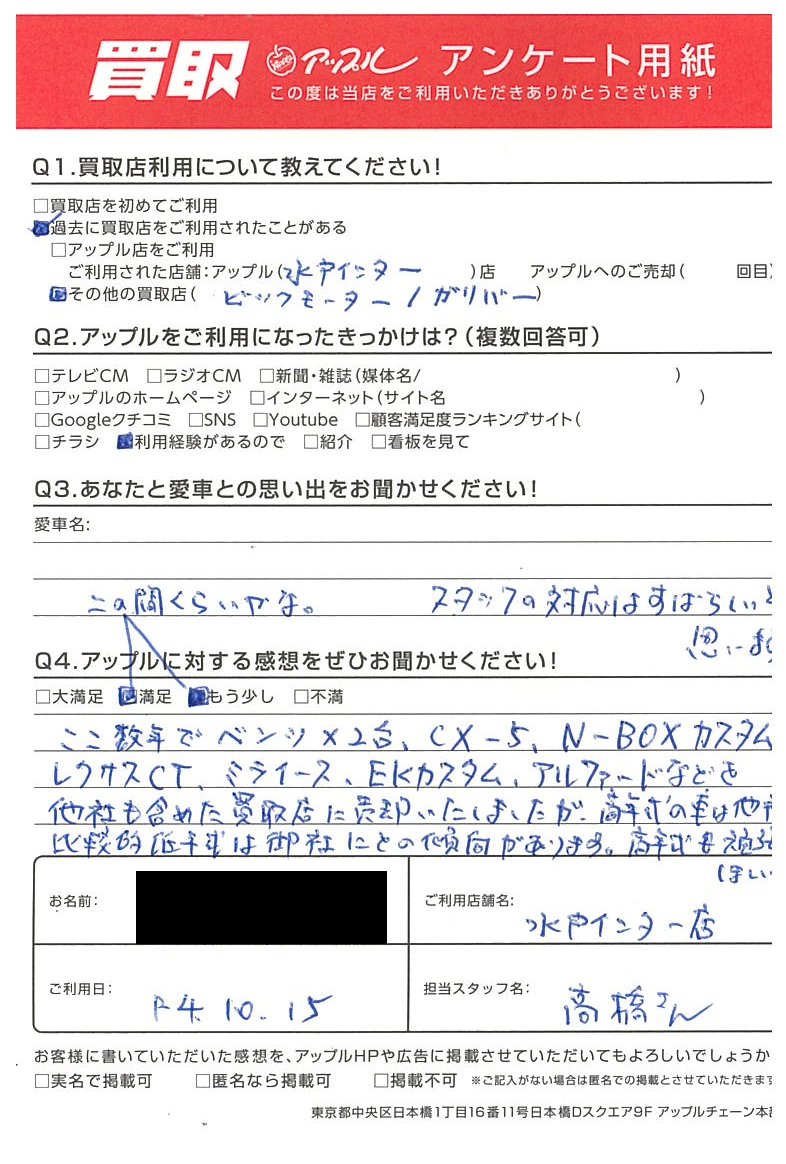 買取 アップル アンケート用紙
この度は当店をご利用いただきありがとうございます!
Q1.買取店利用について教えてください!
□買取店を初めてご利用
■過去に買取店をご利用されたことがある
□アップル店をご利用
ご利用された店舗:アップル(水戸インター)店 アップルへのご売却( 回目)
■その他の買取店(ビックモーター/ガリバー)
Q2.アップルをご利用になったきっかけは?(複数回答可)
□テレビCM □ラジオCM □新聞・雑誌(媒体名/ )
□アップルのホームページ □インターネット(サイト名 )
□Googleクチコミ □SNS □Youtube □顧客満足度ランキングサイト(
□チラシ ■利用経験があるので □紹介 □看板を見て
Q3.あなたと愛車との思い出をお聞かせください!
愛車名:
この間くらいかな。 スタッフの対応はすばらしいと
思いま
Q4.アップルに対する感想をぜひお聞かせください!
□大満足 ■満足 ■もう少し □不満
ここ数年でベンツ×2台、CX-5、N-BOXカスタム
レクサスCT、ミライース、EKカスタム、アルファードなどを
他社も含めた買取店に売却いたしましたが、高年式の車は他
比較的低年式は御社にとの傾向があります。高年式も頑張
ほしい
お名前:
ご利用店舗名:
水戸インター店
ご利用日:
R4.10.15
担当スタッフ名:
高橋さん
お客様に書いていただいた感想を、アップルHPや広告に掲載させていただいてもよろしいでしょうか
□実名で掲載可 □匿名なら掲載可 □掲載不可 ※ご記入がない場合は匿名での掲載とさせていただきます
東京都中央区日本橋1丁目16番11号日本橋Dスクエア9F アップルチェーン本部